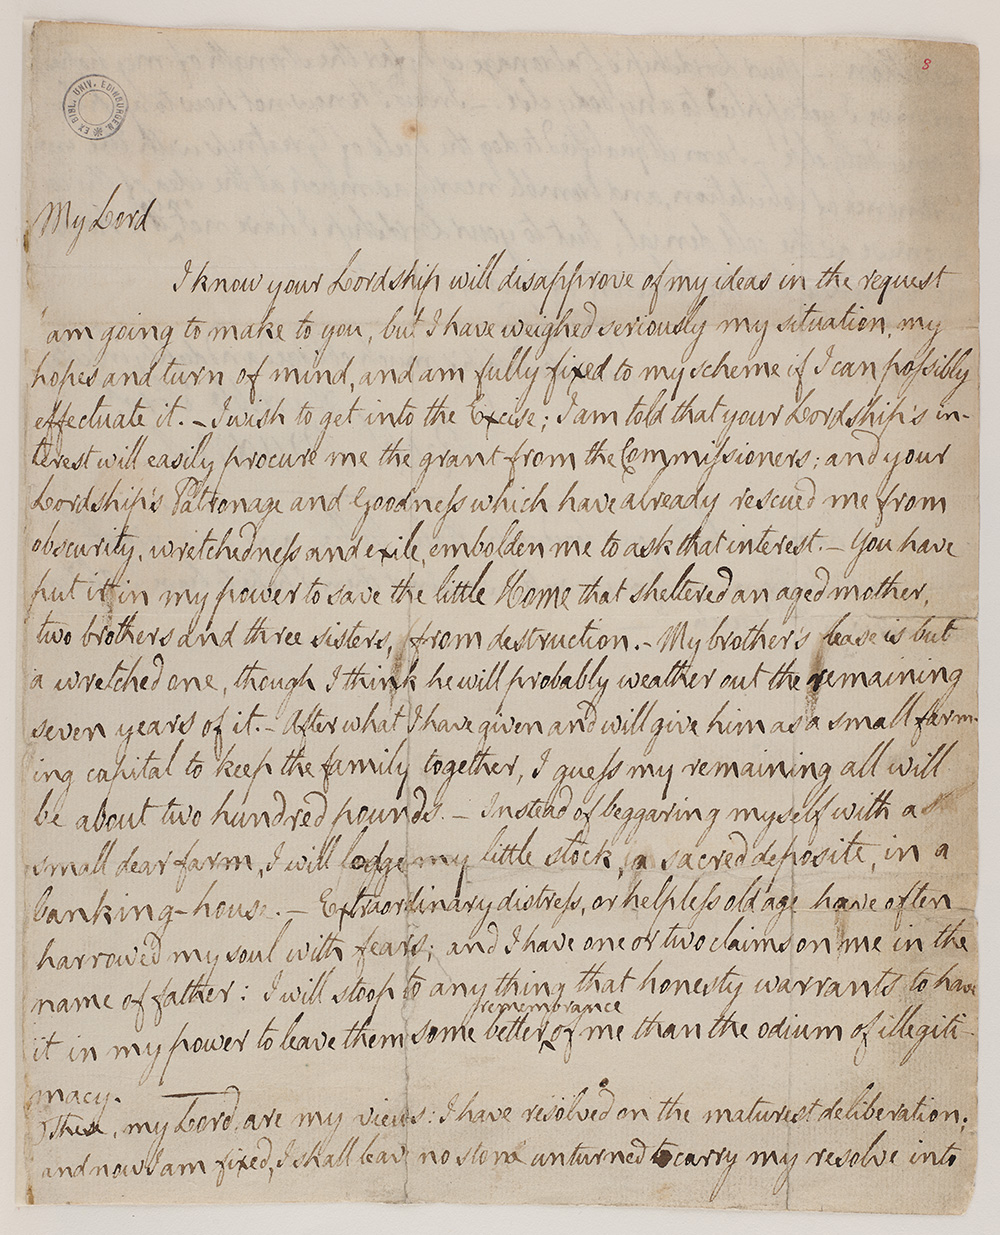 8
EX BIBL. UNIV. EDINBURGEN.
My Lord
I know your Lordship will disapprove of my ideas in the request
I am going to make to you, but I have weighed seriously my situation, my
hopes and turn of mind, and am fully fixed to my scheme if I can poſsibly
effectuate it. — I wish to get into the Excise; I am told that your Lordship's in-
terest will easily procure me the grant from the Commiſsioners; and your
Lordship's Patronage and Goodneſs which have already rescued me from
obscurity, wretchedneſs and exile, embolden me to ask that interest. — You have
put it in my power to save the little Home that sheltered an aged mother,
two brothers and three sisters, from destruction. — My brother's lease is but
a wretched one, though I think he will probably weather out the remaining
seven years of it. — After what I have given and will give him as a small farm-
ing capital to keep the family together, I gueſs my remaining all will
be about two hundred pounds. — Instead of beggaring myself with a
small dear farm, I will lodge my little stock, a sacred deposite, in a
banking-house. — Extraordinary distreſs, or helpleſs old age have often
harrowed my soul with fears; and I have one or two claims on me in the
name of father: I will stoop to any thing that honesty warrants to have
it in my power to leave them some better remembrance of me than the odium of illegiti-
macy. —
These, my Lord, are my views: I have resolved on the maturest deliberation;
and now I am fixed, I shall leave no stone unturned to carry my resolve into